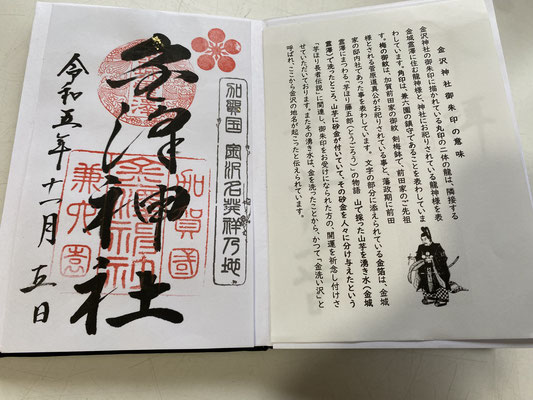 金沢神社御朱印の意味
金沢神社の御朱印に描かれている丸印の二体の龍は、隣接する
金城霊澤に住む龍神様と、神社にお祀りされている龍神様を表
わしています。角印は、兼六園の鎮守であることを表わしていま
す。梅の御紋は、加賀前田家の御紋 剣梅鉢で、前田家のご先祖
様とされる菅原道真公がお祀りされている事と、藩政期に前田
家の邸内社であった事を表わしています。 文字の部分に添えられている金箔は、金城
霊澤にまつわる「芋ほり藤五郎(とうごろう)」の物語 山で採った山芋を湧き水(金城
霊澤)で洗ったところ、山芋に砂金が付いていて、その砂金を人々に分け与えたという
「芋ほり長者伝説」に関連し、御朱印をお受けになられた方の、開運を祈念し付けさ
せていただいております。またその湧き水は、金を洗ったことから、かつて「金洗い沢」と
呼ばれ、ここから金沢の地名が起こったと伝えられています。
加賀国 金沢名発祥乃地
金澤神社
加賀國
兼六園
令和五年十一月五日